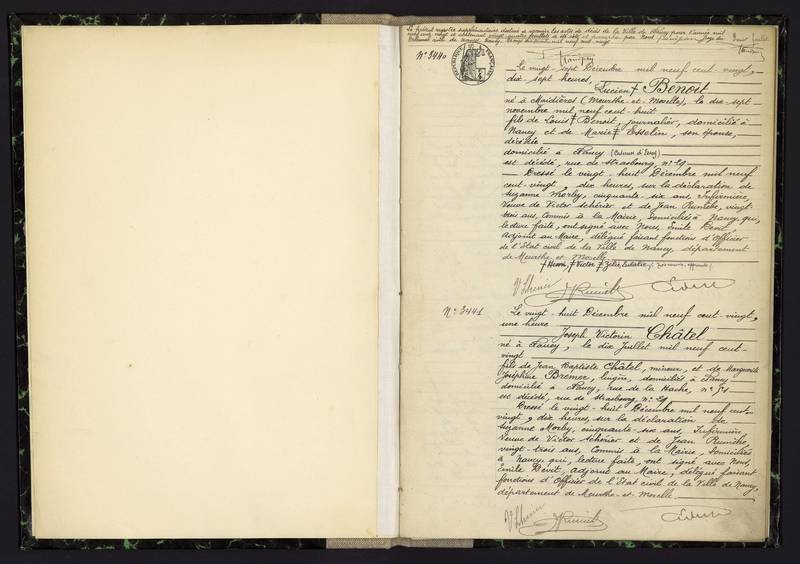 Le présent registre supplémentaire destiné à recevoir les actes de décès de la Ville de Nancy pour l'année mil
neuf cent vingt et contenant vingt quatre feuillets a été coté et paraphé par Nous
N° 3440
RÉPUBLIQUE FRANÇAISE
Le vingt-sept Décembre mil neuf cent-vingt,
dix-sept heures,
Lucien Benoit
né à Maidières (Meurthe-et-Moselle), le dix-sept
novembre mil neuf cent-huit
fils de Louis Benoit, journalier, domicilié à
Nancy et de Marie Esselin, son épouse,
décédée
domicilié à Nancy
est décédé, rue de Strasbourg, n° 29
Dressé le vingt-huit Décembre mil neuf
cent-vingt, dix heures, sur la déclaration de
Suzanne Morby, cinquante-six ans, Infirmière,
Veuve de Victor Schérier et de Jean Runiche, vingt-
trois ans, Commis à la Mairie, domiciliés à Nancy, qui,
lecture faite, ont signé avec Nous, Emile Devit,
Adjoint au Maire, délégué faisant fonctions d'Officier
de l'Etat civil de la Ville de Nancy, département
de Meurthe-et-Moselle
Henri, Victor
N° 3441
Le vingt-huit Décembre mil neuf cent-vingt,
une heure
Joseph Victorin Châtel
né à Nancy, le dix Juillet mil neuf cent-
vingt
fils de Jean Baptiste Châtel, mineur, et de Marguerite
Joséphine Bremer, lingère, domiciliés à Nancy
domicilié à Nancy, rue de la Hache, n° 51
est décédé, rue de Strasbourg, n° 29
Dressé le vingt-huit Décembre mil neuf cent-
vingt, dix heures, sur la déclaration de
Suzanne Morby, cinquante-six ans, Infirmière,
Veuve de Victor Schérier et de Jean Runiche,
vingt-trois ans, Commis à la Mairie, domiciliés
à Nancy, qui, lecture faite, ont signé avec Nous,
Emile Devit, Adjoint au Maire, délégué faisant
fonctions d'Officier de l'Etat civil de la Ville de Nancy,
département de Meurthe-et-Moselle